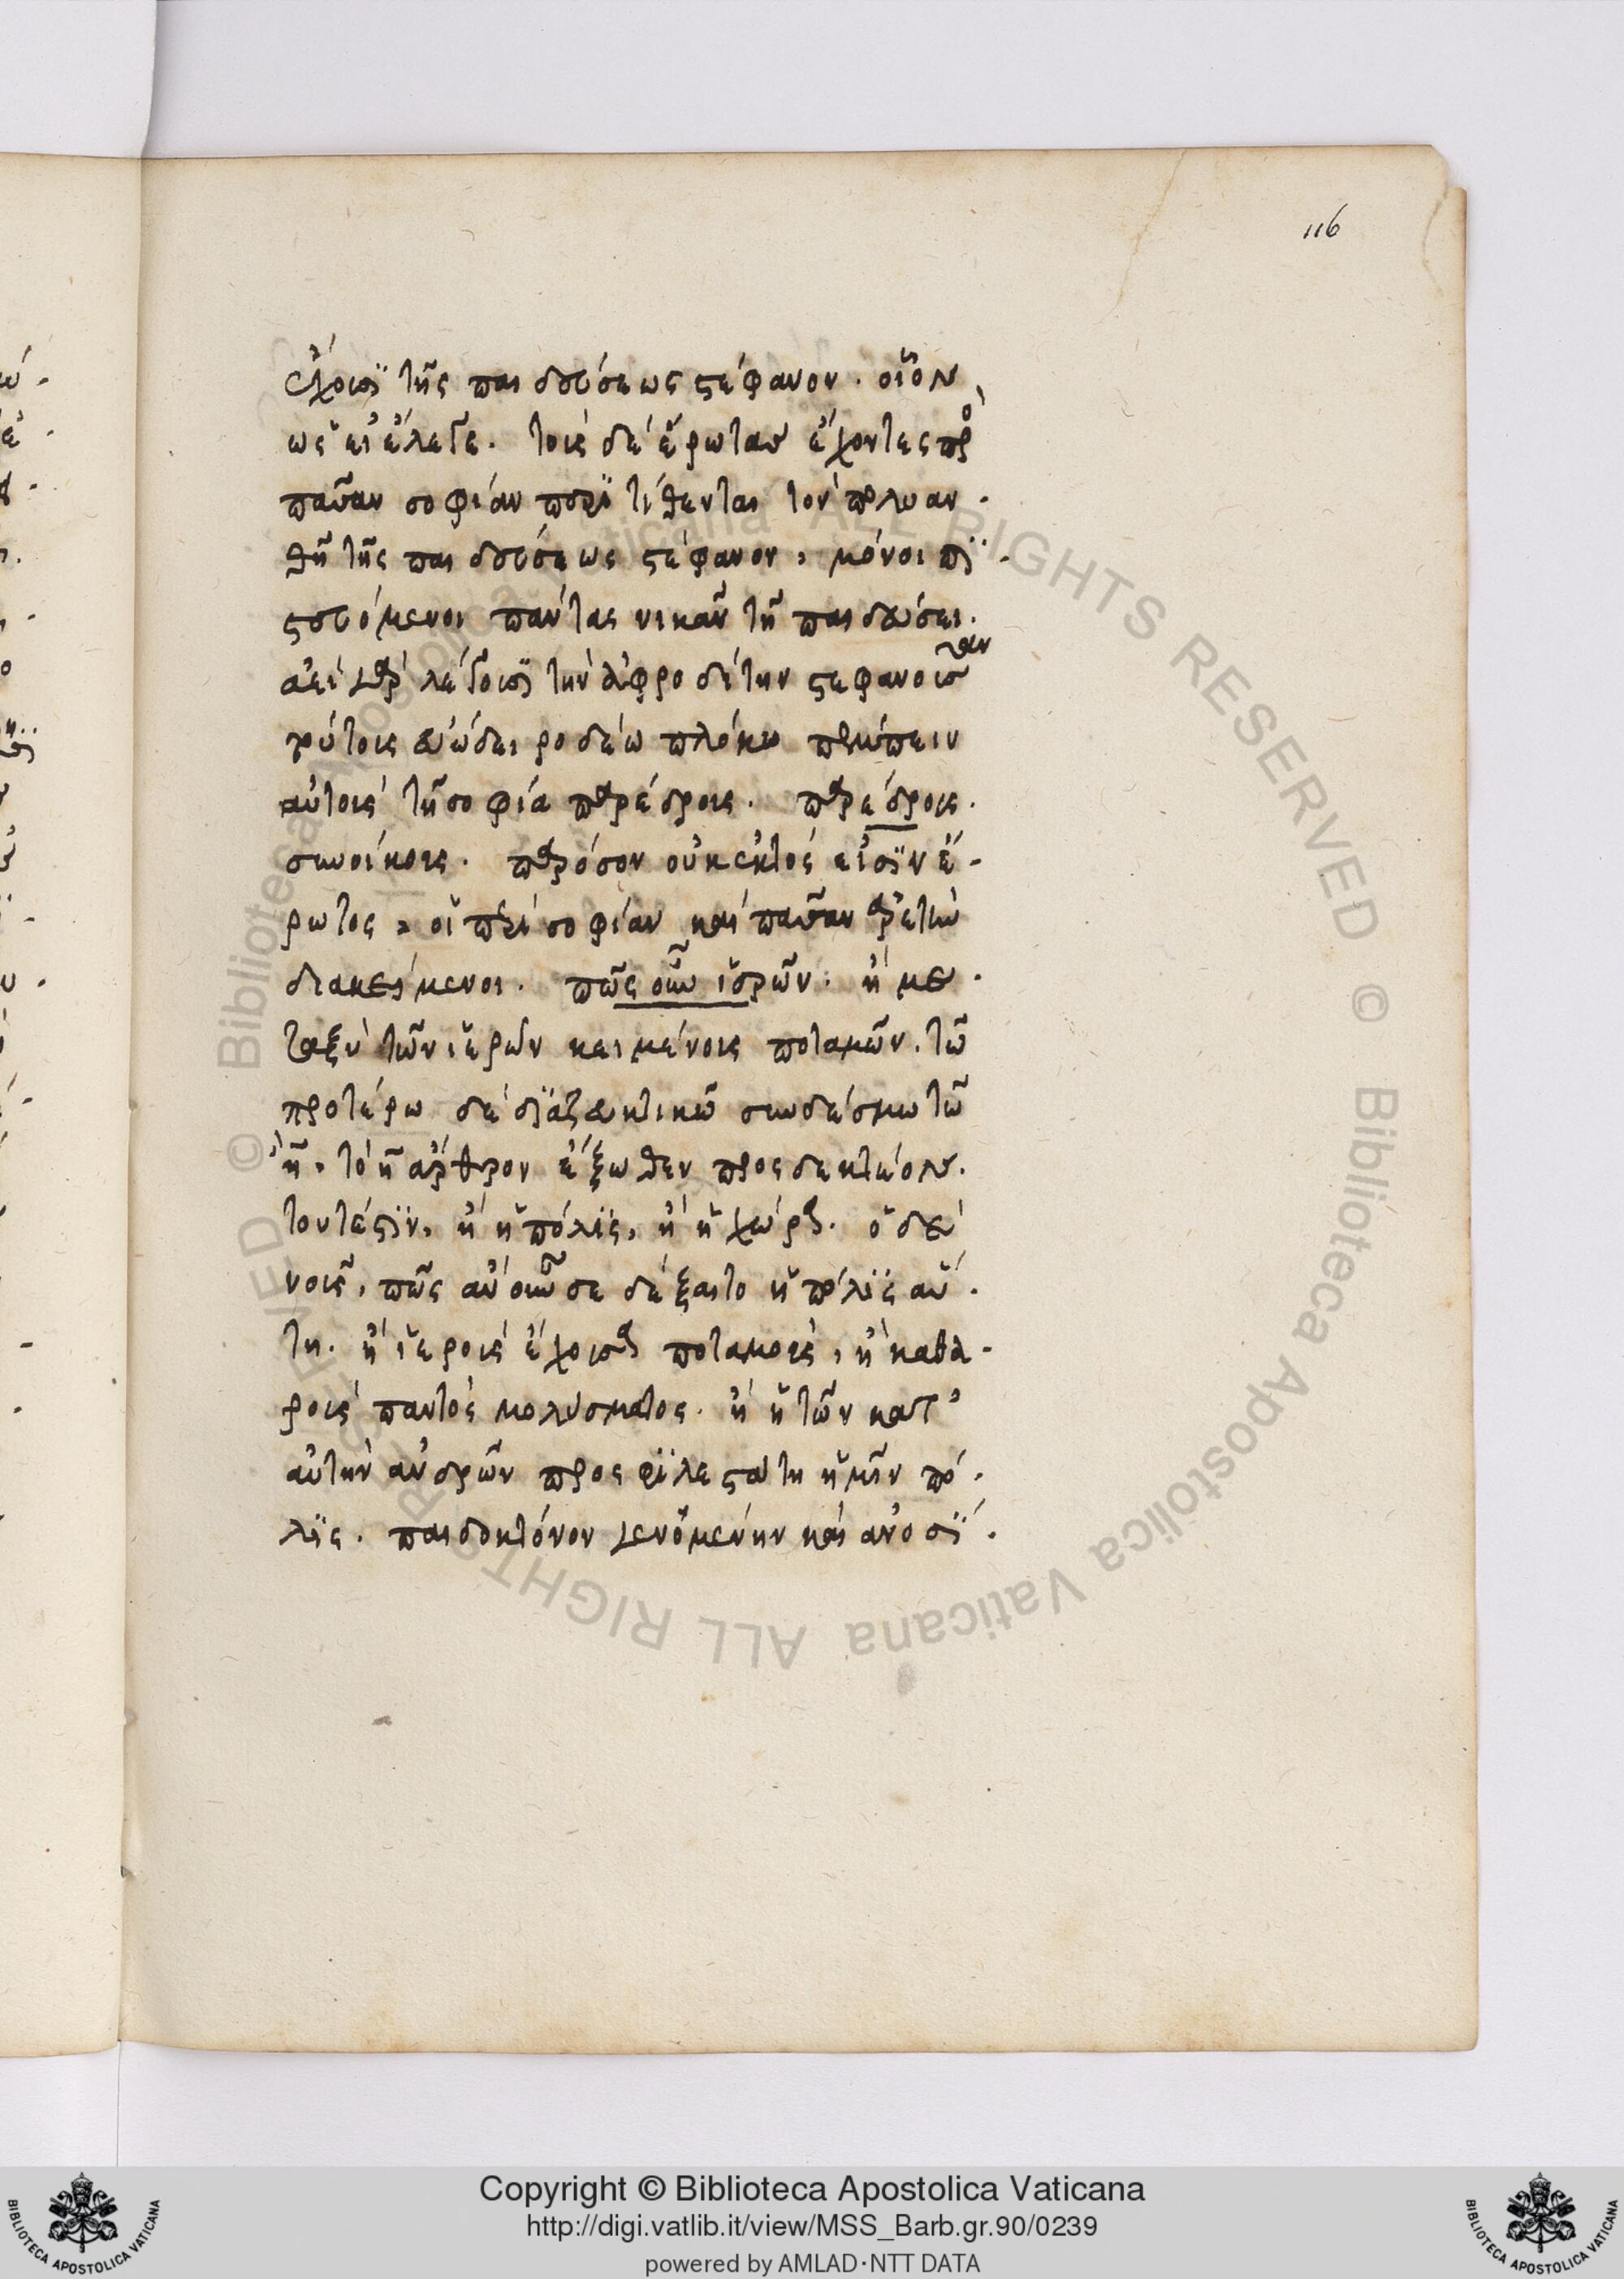 116
ἔχουσι τῆς παιδεύσεως στέφανον. οἷον
ὡς εἰ ἔλεγε. τοὺς δὲ ἔρωτας ἔχοντες πρὸς
πᾶσαν σοφίαν περιτίθενται τὸν πολυαν-
θῆ τῆς παιδεύσεως στέφανον, μόνοι πι-
στευόμενοι πάντας νικᾶν τῇ παιδεύσει.
ἀεὶ γὰρ λέγουσι τὴν ἀφροδίτην στεφανοῦσαν
τούτοις εὐώδει ῥοδέω πλόκω πέμπειν
αὐτοὺς τῇ σοφία παρέδρους. παρέδρους.
συνοίκους. παρόσον οὐκ ἐκτὸς εἰσὶν ἔ-
ρωτος, οἱ περὶ σοφίαν καὶ πᾶσαν ἀρετὴν
διακείμενοι. πῶς οὖν ἱερῶν. ἢ με-
ταξὺ τῶν ἱερῶν κειμένοις ποταμῶν. τῶ
προτέρω δὲ διαζευκτικῶ συνδέσμω τῶ
ἢ, τὸ ἡ ἄρθρον ἔξωθεν προσδεκτέον.
τουτέστιν, ἢ ἡ πόλις, ἢ ἡ χώρα. ὁ δὲ
νοῦς, πῶς ἂν οὖν σε δέξαιτο ἡ πόλις αὕ-
τη. ἢ ἱεροὺς ἔχουσα ποταμοὺς, ἢ καθα-
ροὺς παντὸς μολύσματος. ἢ ἡ τῶν κατ'
αὐτὴν ἀνδρῶν προσφιλεστάτη ἡμῖν πό-
λις. παιδοκτόνον γενομένην καὶ ἀνοσί-
Copyright © Biblioteca Apostolica Vaticana
http://digi.vatlib.it/view/MSS_Barb.gr.90/0239
powered by AMLAD·NTT DATA
BIBLIOTECA APOSTOLICA VATICANA
BIBLIOTECA APOSTOLICA VATICANA
© Biblioteca Apostolica Vaticana ALL RIGHTS RESERVED © Biblioteca Apostolica Vaticana ALL RIGHTS RESERVED